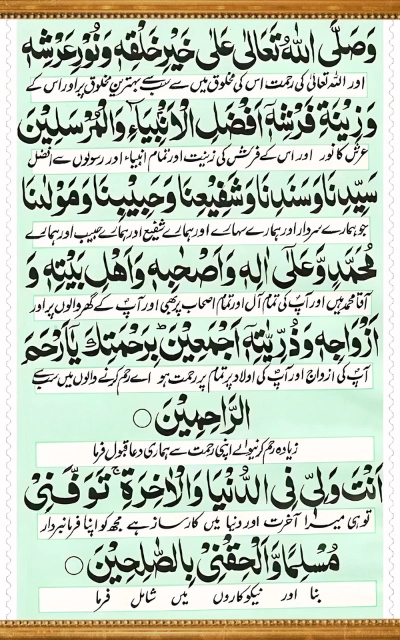 وَصَلَّى اللهُ تَعَالٰى عَلٰى خَيْرِ خَلْقِهٖ وَنُوْرِ عَرْشِهٖ
اور اللہ تعالیٰ کی رحمت اس کی مخلوق میں سے سب سے بہترین مخلوق پر اور اس کے
وَزِيْنَةِ فَرْشِهٖ اَفْضَلِ الْاَنْبِيَآءِ وَالْمُرْسَلِيْنَ
عرش کا نور اور اس کے فرش کی زینت اور تمام انبیاء اور رسولوں سے افضل
سَيِّدِنَا وَسَنَدِنَا وَشَفِيْعِنَا وَحَبِيْبِنَا وَمَوْلٰنَا
جو ہمارے سردار اور ہمارے سہارے اور ہمارے شفیع اور ہمارے حبیب اور ہمارے
مُحَمَّدٍ وَّعَلٰٓى اٰلِهٖ وَاَصْحٰبِهٖ وَاَهْلِ بَيْتِهٖ وَ
آقا محمد ہیں اور آپ کی تمام آل اور تمام اصحاب پر بھی اور آپ کے گھر والوں پر اور
اَزْوَاجِهٖ وَذُرِّيّٰتِهٖٓ اَجْمَعِيْنَ ؕ بِرَحْمَتِكَ يَآ اَرْحَمَ
آپ کی ازواج اور آپ کی اولاد پر تمام پر رحمت ہو اے رحم کرنے والوں میں سب سے
الرَّاحِمِيْنَ ○
زیادہ رحم کرنیوالے اپنی رحمت سے ہماری دعا قبول فرما
اَنْتَ وَلِيّٖ فِى الدُّنْيَا وَالْاٰخِرَةِ ۚ تَوَفَّنِىْ
تو ہی میرا آخرت اور دنیا میں کارساز ہے مجھ کو اپنا فرمانبردار
مُسْلِمًا وَّاَلْحِقْنِىْ بِالصّٰلِحِيْنَ ○
بنا اور نیکوکاروں میں شامل فرما